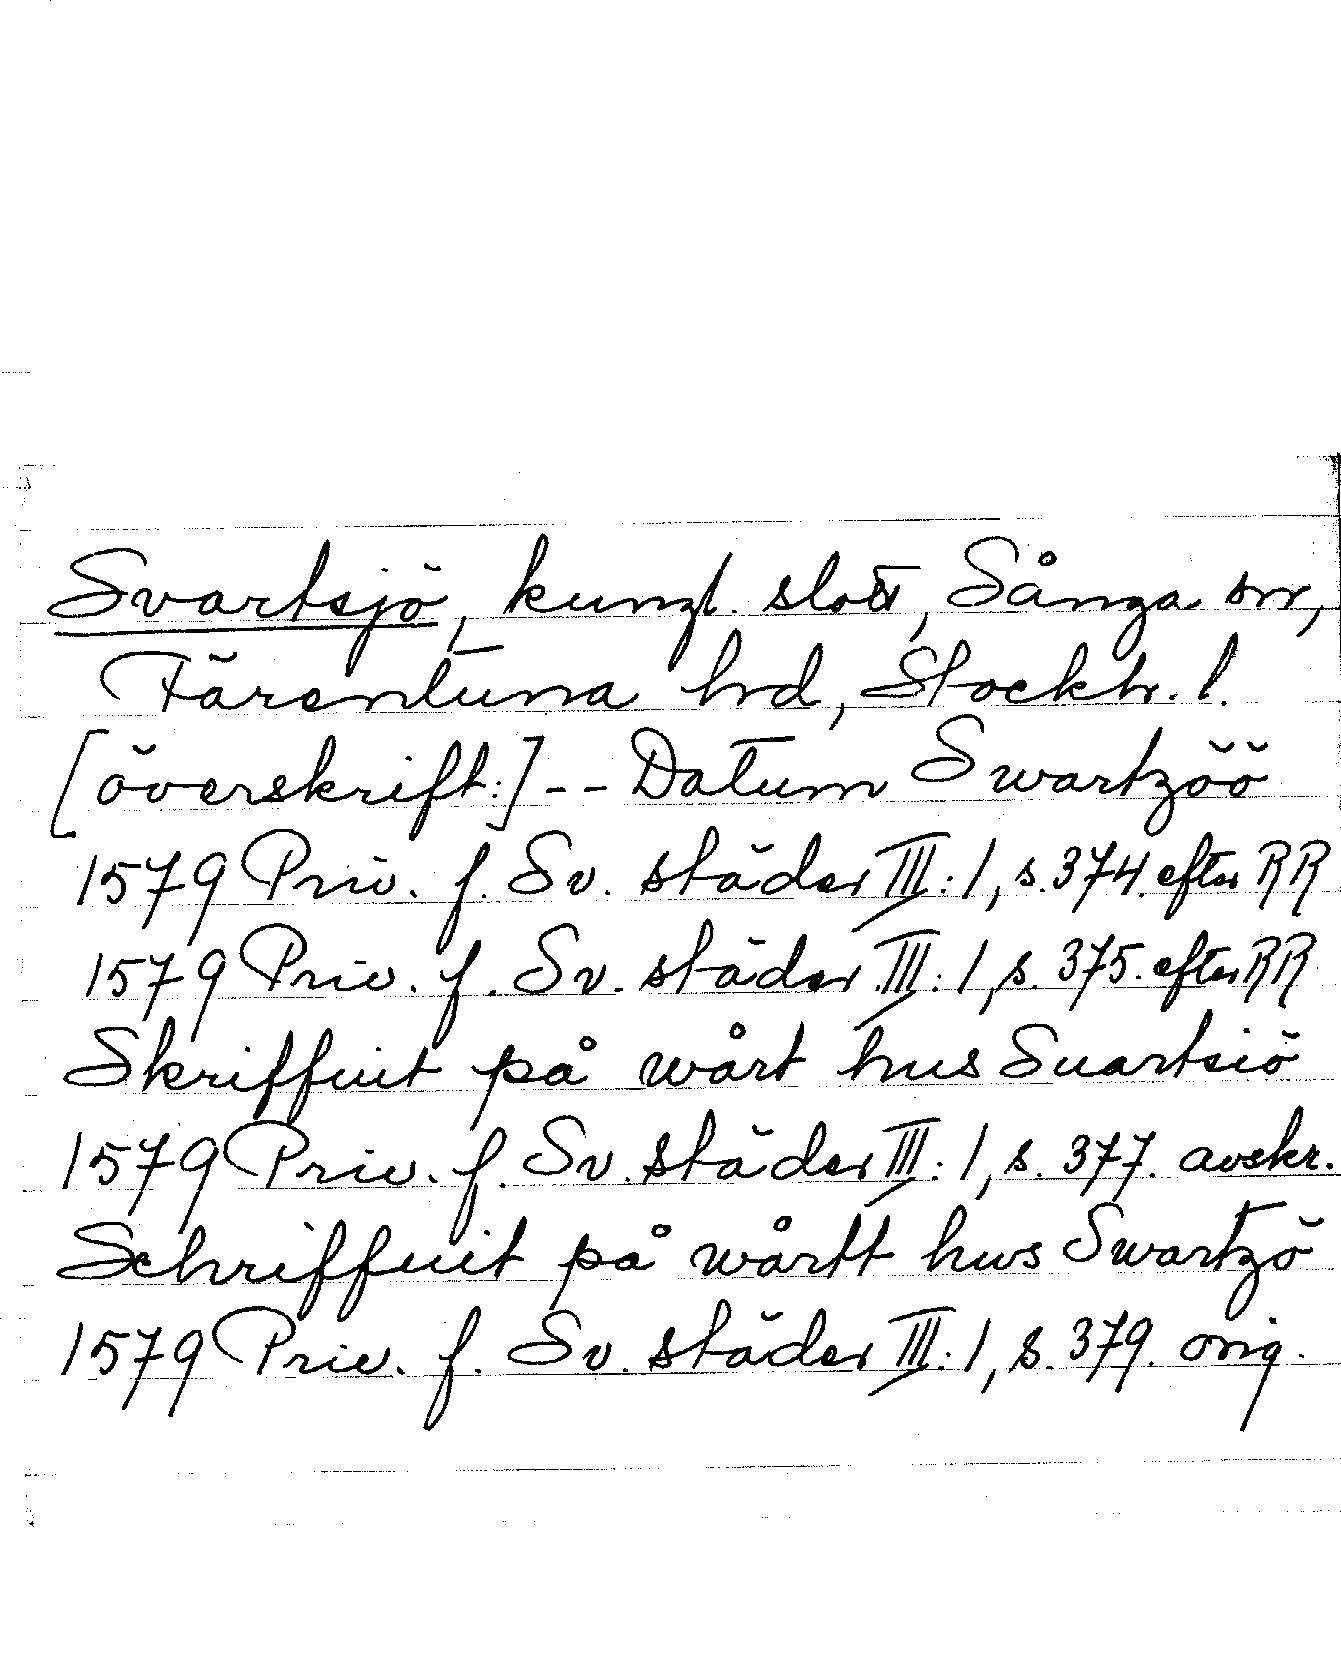 Svartsjö, kungl. slott, Sånga sn,
Färentuna hrd, Stockh. l.
[överskrift:] -- Datum Swartzöö
1579 Priv. f. Sv. städer III: 1, s. 374. efter RR
1579 Priv. f. Sv. städer III: 1, s. 375. efter RR
Skriffuit på wårt hus Suartsiö
1579 Priv. f. Sv. städer III: 1, s. 377. avskr.
Schriffuit på wårtt hws Swartzö
1579 Priv. f. Sv. städer III: 1, s. 379. orig.